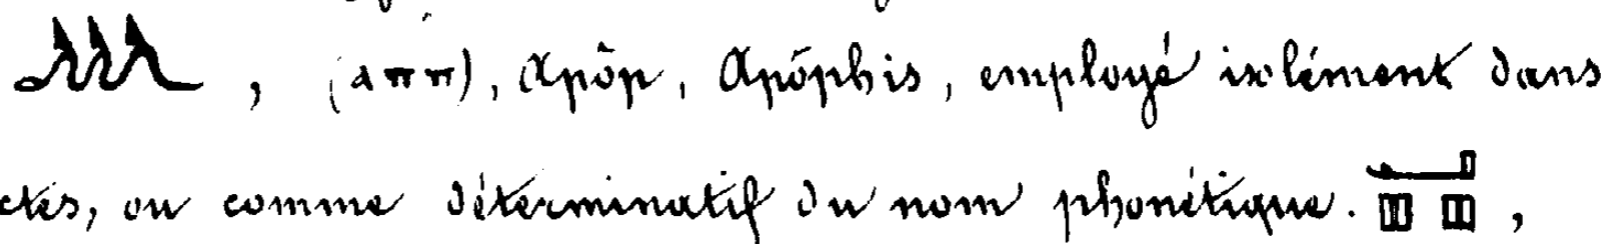 , (ⲁⲡⲡ), Apôp, Apôphis, employé isolément dans
ctes, ou comme déterminatif du nom phonétique. 𓂝𓊪𓊪,